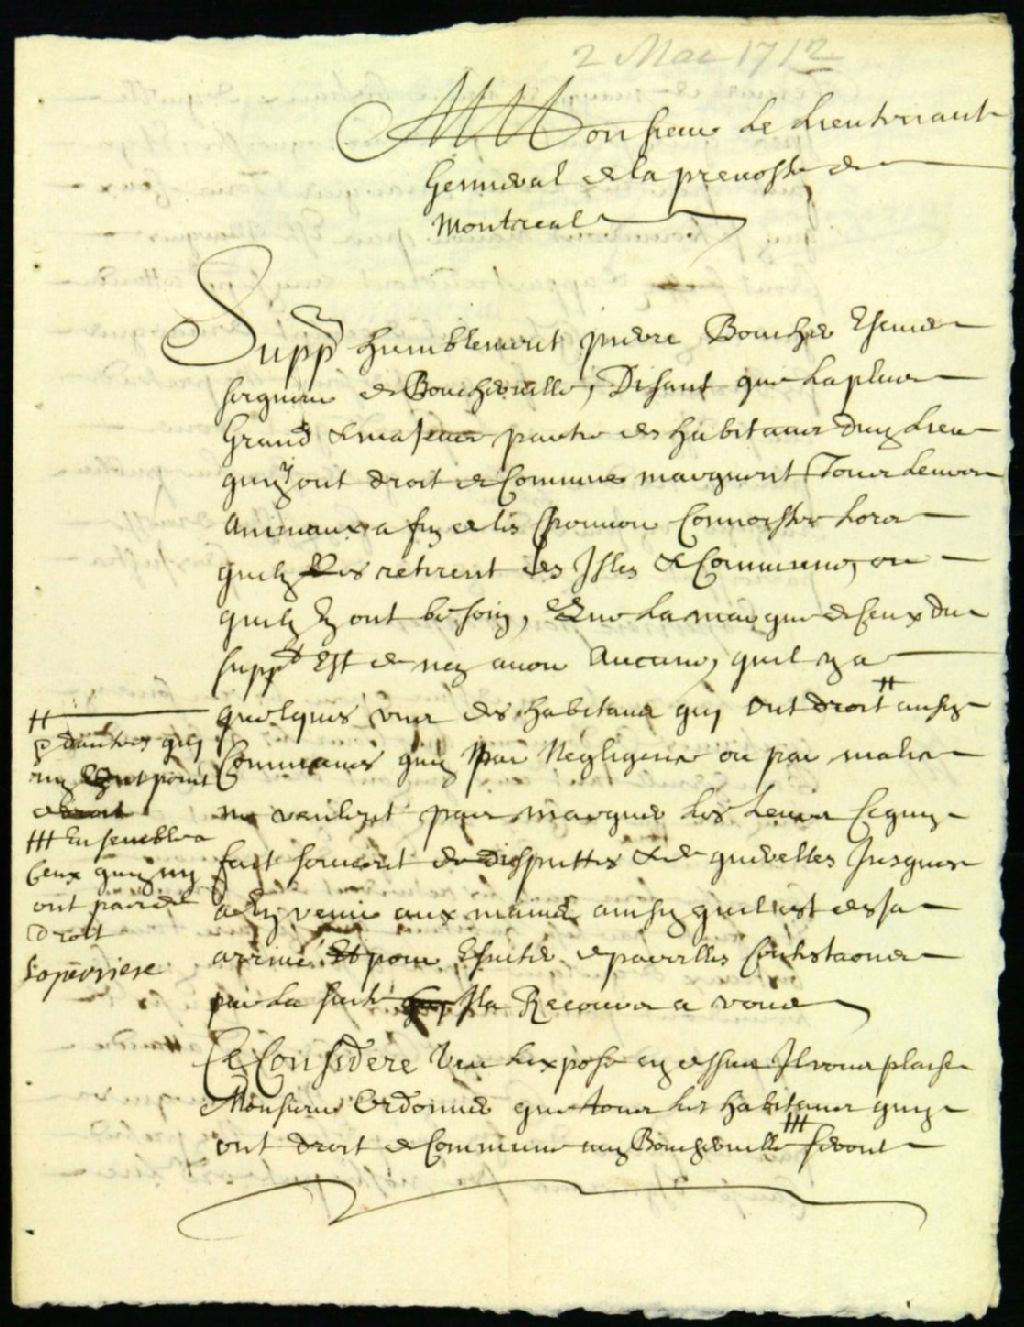 2 Mai 1712
A Monsieur Le Lieutenant
General de la prevosté de
Montreal
Supp^t humblement pierre Boucher Escuier
seigneur de Boucherville, Disant que La plus
Grand & majeure partie des habitans dud Lieu
quy ont droit de Commune marquent Tous Leurs
Animaux a fin de les Pouvoir Connoistre Lors
quils Les retirent des Isles & Communes, ou
quils En ont besoin, Que La marque de Ceux du
supp^t Est de n'en avoir Aucune, quil y a
quelques uns des habitans quy ont droit # ausd
Communes quy Par Negligence ou par malice
ne veulent pas marquer Les Leurs Ce quy
fait souvent des disputtes & de querelles Jusques
a En venir aux mains ainsy quil est desja
arrivé Et pour Esviter de pareilles Contestaons
par La suite Il a Recours a vous
Ce Consideré Veu Lexposé cy dessus Il vous plaise
Monsieur Ordonner que tous Les habitans quy
ont droit de Commune aud Boucherville ### seront
#
& dautres quy
ny Ont point
droit
### Ensemble
Ceux quy ny
ont pas de
Droit
Lapersiere